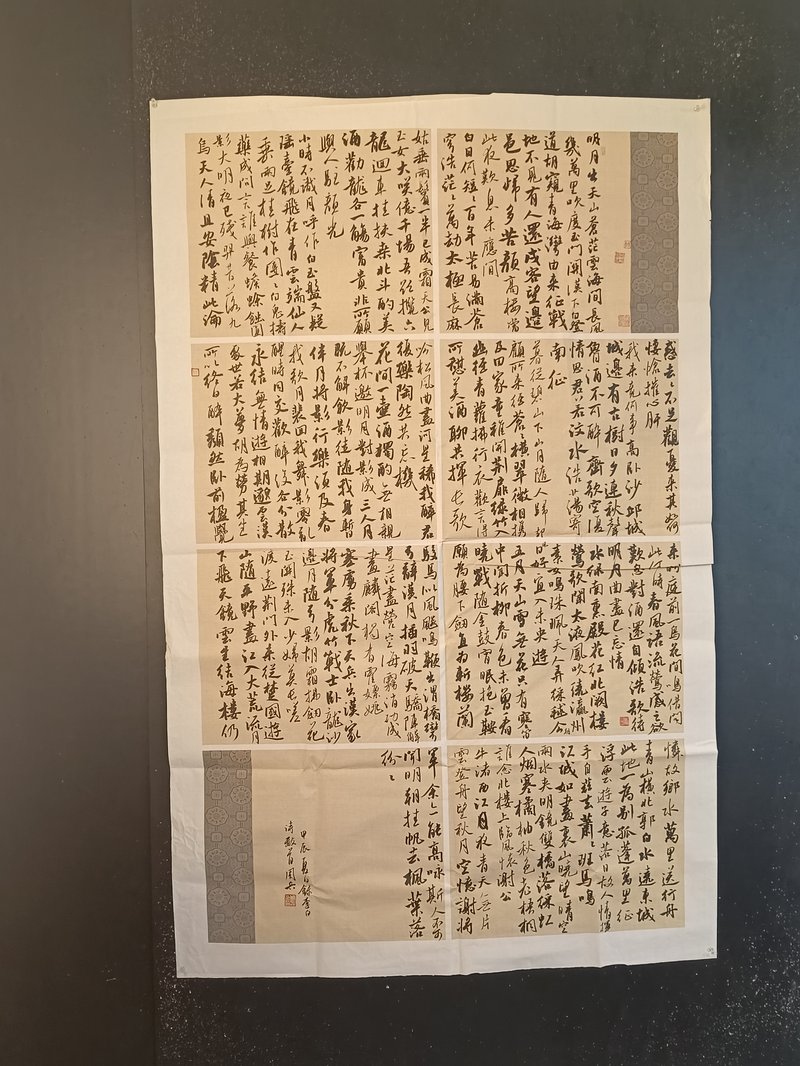 明月出天山蒼茫雲海間長風
幾萬里吹度玉門關漢下白登
道胡窺青海灣由來征戰
地不見有人還戍客望邊
邑思婦多苦顏高樓當
此夜歎息未應間
白日何短短百年苦易滿蒼
穹浩茫茫萬劫太極長麻
姑垂兩鬢一半已成霜天公見
玉女大笑億千場吾欲攬六
龍迴車挂扶桑北斗酌美
酒勸龍各一觴富貴非所願
與人駐顏光
小時不識月呼作白玉盤又疑
瑤臺鏡飛在青雲端仙人
垂兩足桂樹作團團白兔擣
藥成問言誰與餐蟾蜍蝕圓
影大明夜已殘羿昔落九
烏天人清且安陰精此淪
惑去去不足觀憂來其如何
悽愴摧心肝
我來竟何事高臥沙邱城
城邊有古樹日夕連秋聲
魯酒不可醉齊歌空復
情思君若汶水浩蕩寄
南征
暮從碧山下山月隨人歸却
顧所來徑蒼蒼橫翠微相攜
及田家童稚開荊扉綠竹入
幽徑青蘿拂行衣歡言得
所憩美酒聊共揮長歌
吟松風曲盡河星稀我醉君
復樂陶然共忘機
花間一壺酒獨酌無相親
舉杯邀明月對影成三人月
既不解飲影徒隨我身暫
伴月將影行樂須及春
我歌月裴回我舞影零亂
醒時同交歡醉後各分散
永結無情遊相期邈雲漢
處世若大夢胡為勞其生
所以終日醉頹然臥前楹覺
來盼庭前一鳥花間鳴借問
此何時春風語流鶯感之欲
歎息對酒還自傾浩歌待
明月曲盡已忘情
水綠南薰殿花紅北闕樓
鶯歌聞太液鳳吹繞瀛州
素女鳴珠佩天人弄綵毬今朝
日好宜入未央遊
五月天山雪無花只有寒笛
中聞折柳春色未曾看
曉戰隨金鼓宵眠抱玉鞍
願為腰下劍直為斬樓蘭
駿馬似風飈鳴鞭出渭橋彎
弓辭漢月插羽破天驕陣解
星芒盡營空海霧消功成
畫麟閣獨有霍嫖姚
塞虜乘秋下天兵出漢家
將軍分虎竹戰士臥龍沙
邊月隨弓影胡霜拂劍花
玉關殊未入少婦莫長嗟
渡遠荊門外來從楚國遊
山隨平野盡江入大荒流月
下飛天鏡雲生結海樓仍
憐故鄉水萬里送行舟
青山橫北郭白水遶東城
此地一為別孤蓬萬里征
浮雲遊子意落日故人情揮
手自茲去蕭蕭班馬鳴
江城如畫裏山曉望晴空
兩水夾明鏡雙橋落綵虹
人烟寒橘柚秋色老梧桐
誰念北樓上臨風懷謝公
牛渚西江月夜青天無片
雲登舟望秋月空憶謝將
軍余亦能高詠斯人不可
聞明朝挂帆去楓葉落
紛紛
甲辰夏月錄李白
詩數首